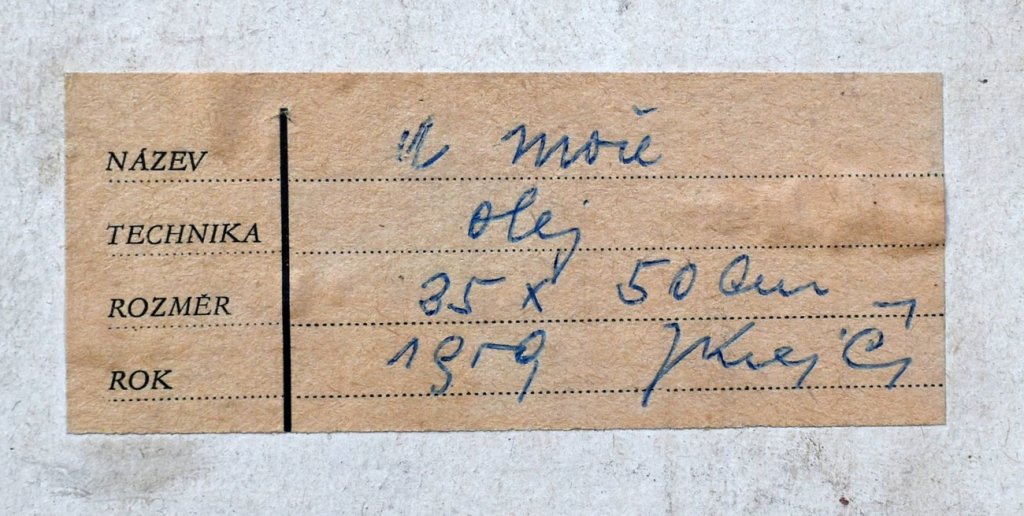 NÁZEV U moře
TECHNIKA olej
ROZMĚR 35 x 50 cm
ROK 1959 JKrejčí